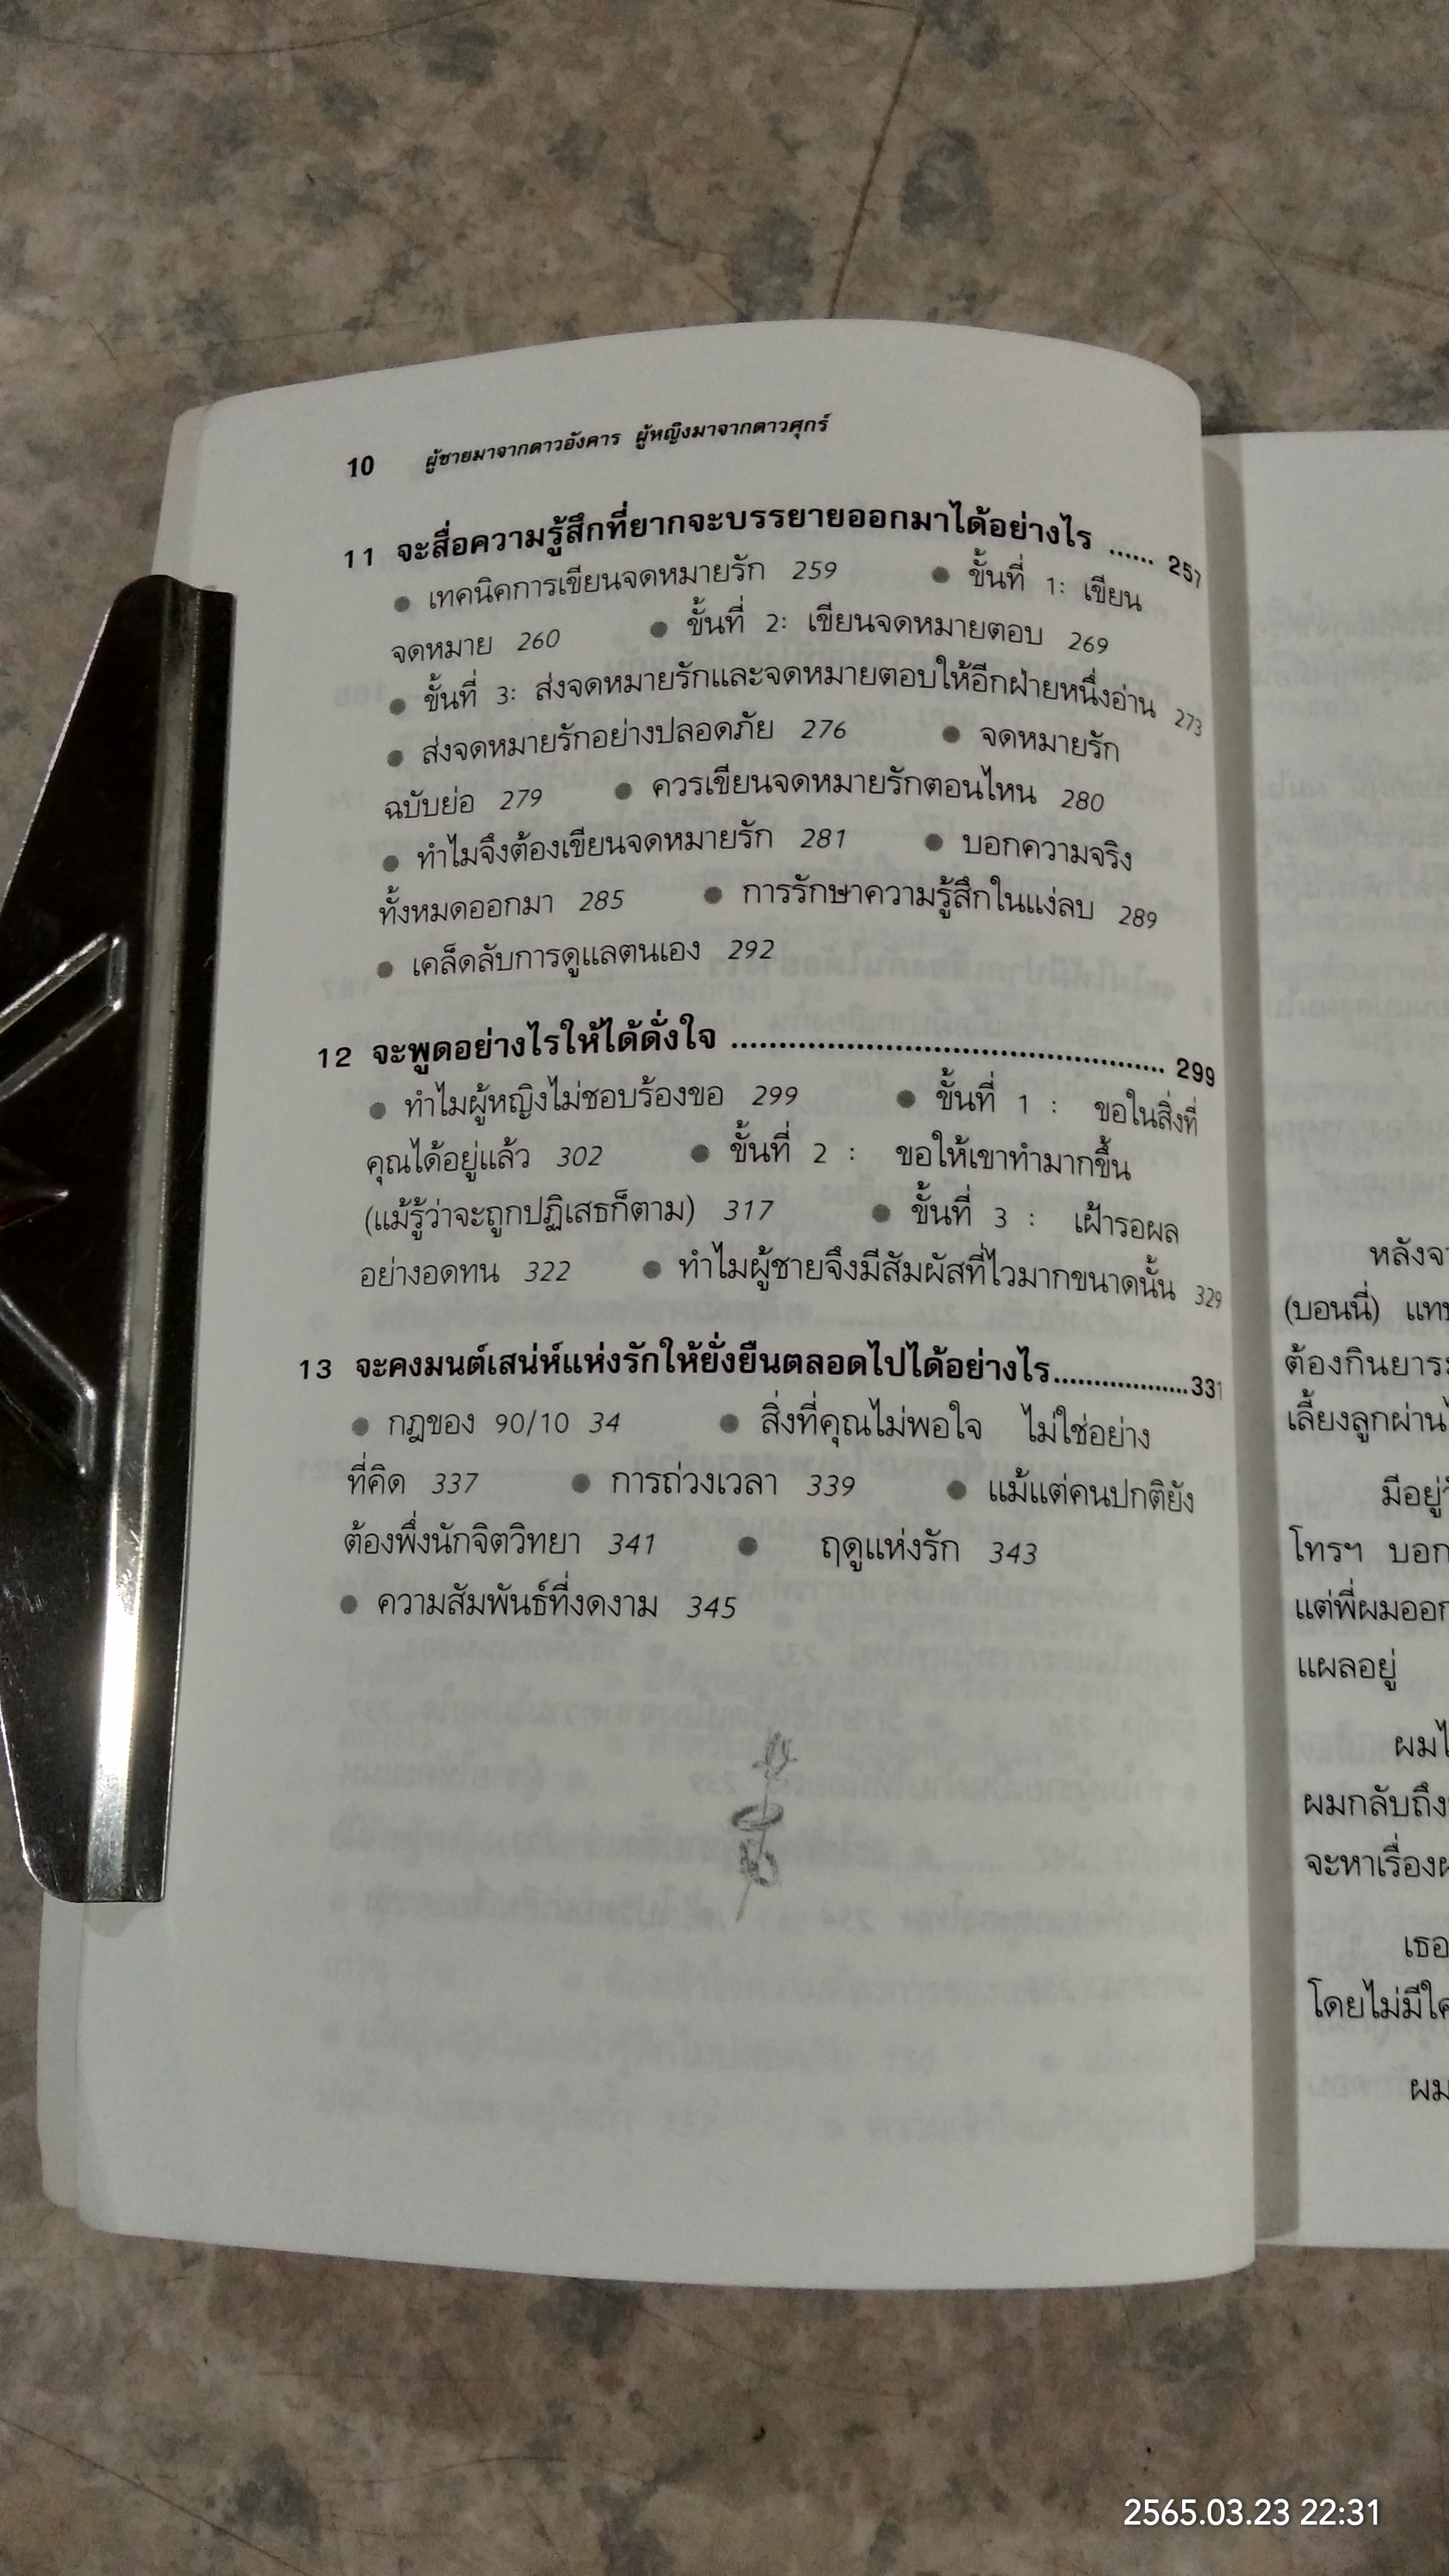 10 ผู้ชายมาจากดาวอังคาร ผู้หญิงมาจากดาวศุกร์
11 จะสื่อความรู้สึกที่ยากจะบรรยายออกมาได้อย่างไร ...... 257
● เทคนิคการเขียนจดหมายรัก 259 ● ขั้นที่ 1: เขียน
จดหมาย 260 ● ขั้นที่ 2: เขียนจดหมายตอบ 269
● ขั้นที่ 3: ส่งจดหมายรักและจดหมายตอบให้อีกฝ่ายหนึ่งอ่าน 273
● ส่งจดหมายรักอย่างปลอดภัย 276 ● จดหมายรัก
ฉบับย่อ 279 ● ควรเขียนจดหมายรักตอนไหน 280
● ทำไมจึงต้องเขียนจดหมายรัก 281 ● บอกความจริง
ทั้งหมดออกมา 285 ● การรักษาความรู้สึกในแง่ลบ 289
● เคล็ดลับการดูแลตนเอง 292
12 จะพูดอย่างไรให้ได้ดั่งใจ .............................................. 299
● ทำไมผู้หญิงไม่ชอบร้องขอ 299 ● ขั้นที่ 1 : ขอในสิ่งที่
คุณได้อยู่แล้ว 302 ● ขั้นที่ 2 : ขอให้เขาทำมากขึ้น
(แม้รู้ว่าจะถูกปฏิเสธก็ตาม) 317 ● ขั้นที่ 3 : เฝ้ารอผล
อย่างอดทน 322 ● ทำไมผู้ชายจึงมีสัมผัสที่ไวมากขนาดนั้น 329
13 จะคงมนต์เสน่ห์แห่งรักให้ยั่งยืนตลอดไปได้อย่างไร..................331
● กฎของ 90/10 34 ● สิ่งที่คุณไม่พอใจ ไม่ใช่อย่าง
ที่คิด 337 ● การถ่วงเวลา 339 ● แม้แต่คนปกติยัง
ต้องพึ่งนักจิตวิทยา 341 ● ฤดูแห่งรัก 343
● ความสัมพันธ์ที่งดงาม 345
หลังจา
(บอนนี่) แทบ
ต้องกินยาระ
เลี้ยงลูกผ่าน
มีอยู่
โทรฯ บอก
แต่พี่ผมออก
แผลอยู่
ผมไ
ผมกลับถึง
จะหาเรื่อง
เธอ
โดยไม่มีใค
ผม
2565.03.23 22:31